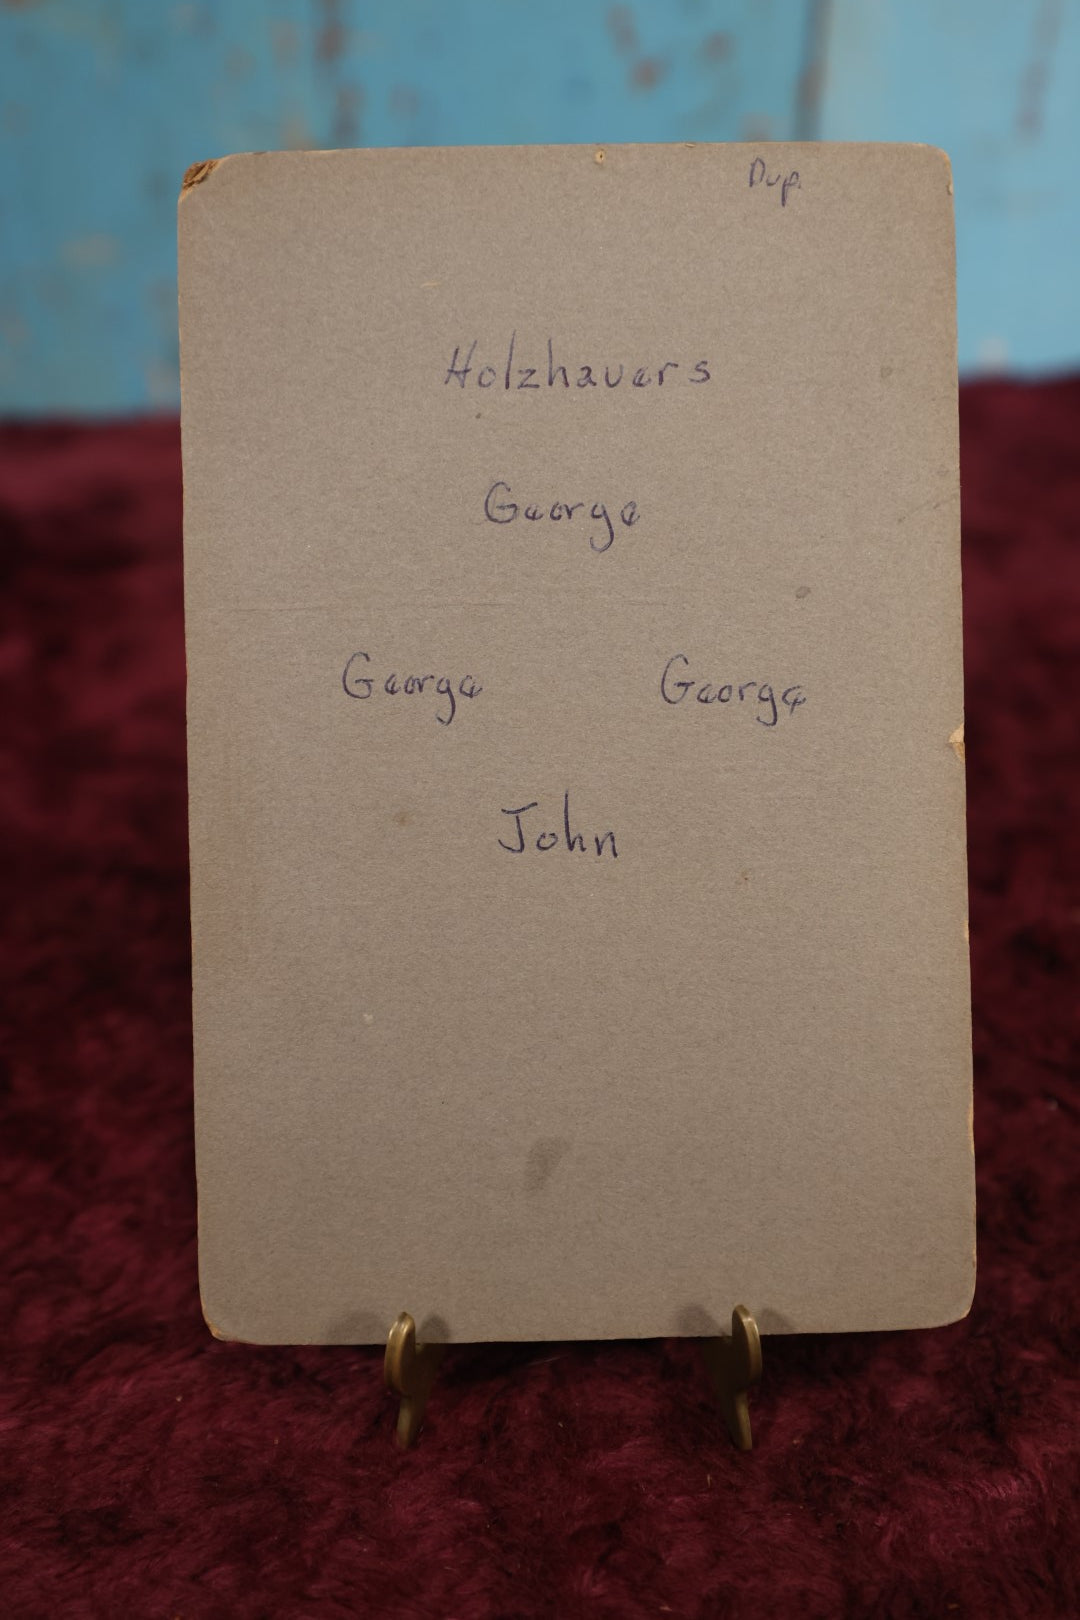 Dup.
Holzhauers
George
George George
John